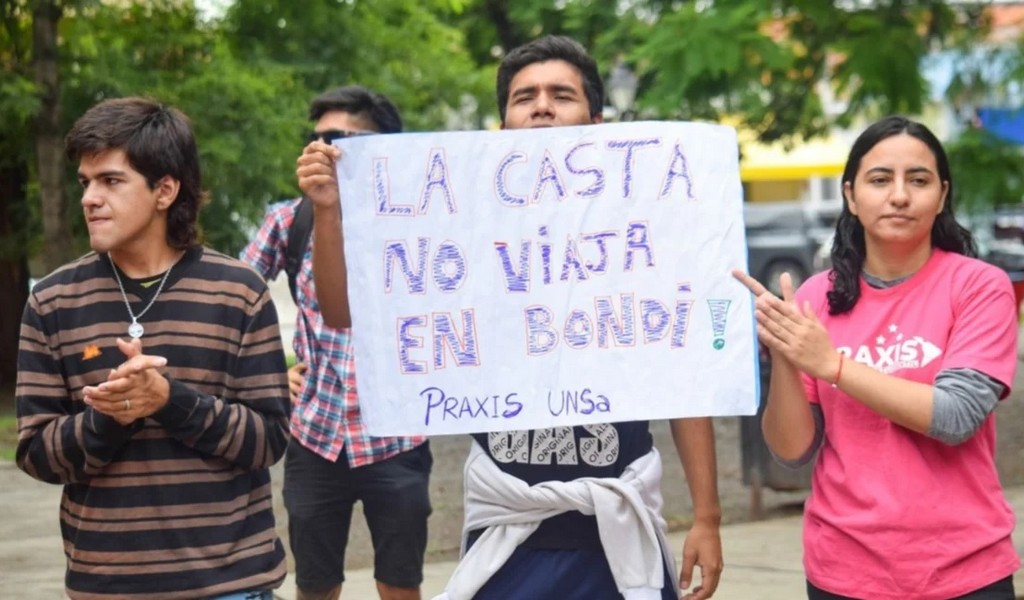 LA CASTA
NO ViAJA
EN BONDi!
PRAXIS UNSa
PRAXIS